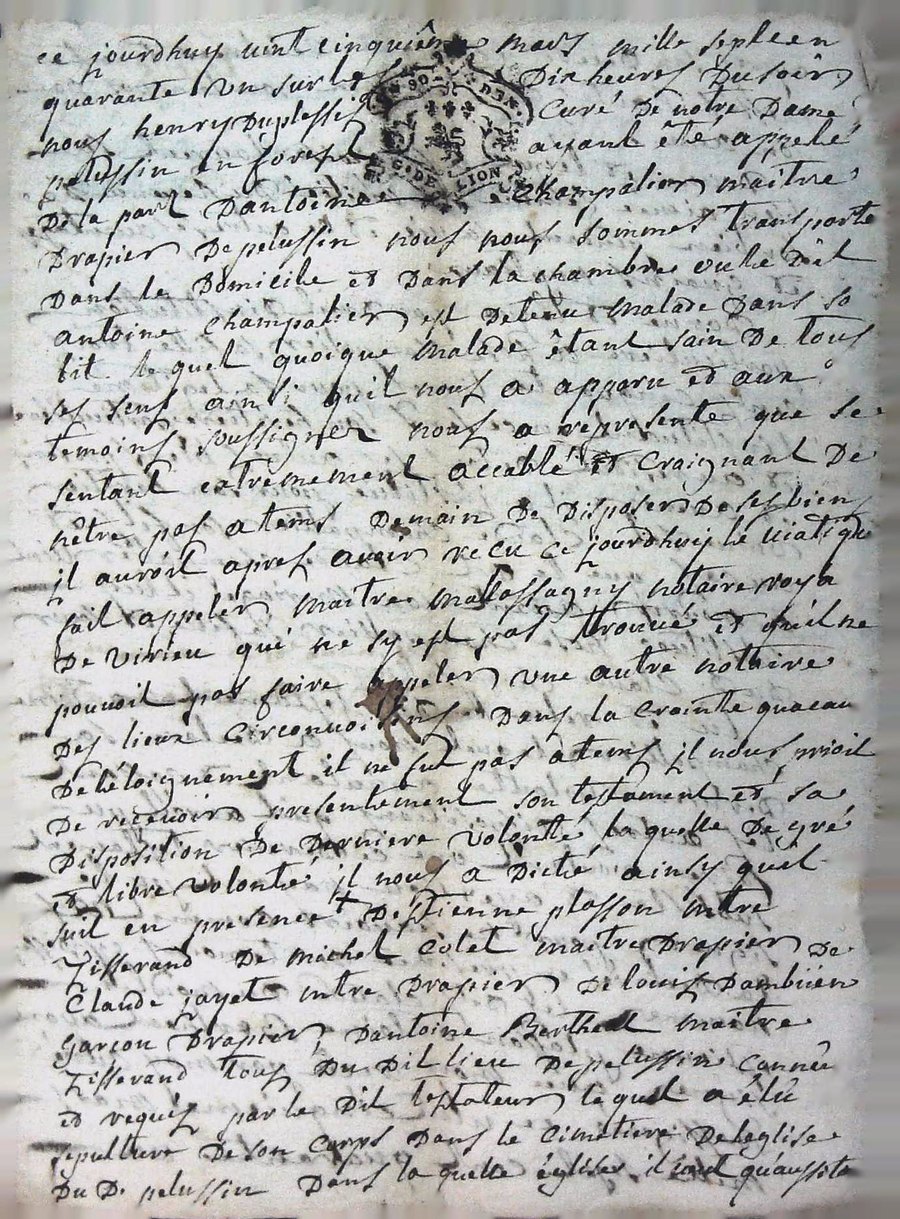 ce jourdhuy vint cinquième mars mille sept cen
quarante un sur les Dix heures Du soir
nous henry Duplessis Curé De notre Dame
pelussin en forest ayant êté appelé
De la part Dantoine Champalier maitre
Drapier De pelussin nous nous sommes transporté
Dans le Domicile et Dans la chambre ou le Dit
antoine Champalier est Detenu malade Dans so
lit le quel quoique malade êtant sain De tous
ses sens ainsi quil nous a apparu et aux
temoins soussignez nous a représenté que se
sentant extremement accablé et craignant De
nêtre pas a tems Demain De Disposer De ses bien
il auroit apres avoir recu ce jourdhuy le viatique
fait appeler maitre mallassagny notaire roya
De virieu qui ne sy est pas trouvé et quil ne
pouvoit pas faire appeler une autre notaire
Des lieux Circonvoisins Dans la crainte qua cau
De léloignement il ne fut pas a tems il nous prioit
De recevoir presentement son testament et sa
Disposition De Derniere volonté la quelle De gré
et libre volonté il nous a Dicté ainsy quil
suit en presence Destienne plasson mtre
Tisserand De michel Colet maitre Drapier De
Claude jayet mtre Drapier De louis Dambuen
garcon Drapier, Dantoine Bertheat maitre
Tisserand tous Du Dit lieu De pelussin connu
et requis par le Dit testateur le quel a élû
sepulture De son Corps Dans le Cimetiere De leglise
Du D. pelussin Dans la quelle église il veut quaussito
G. DE LION